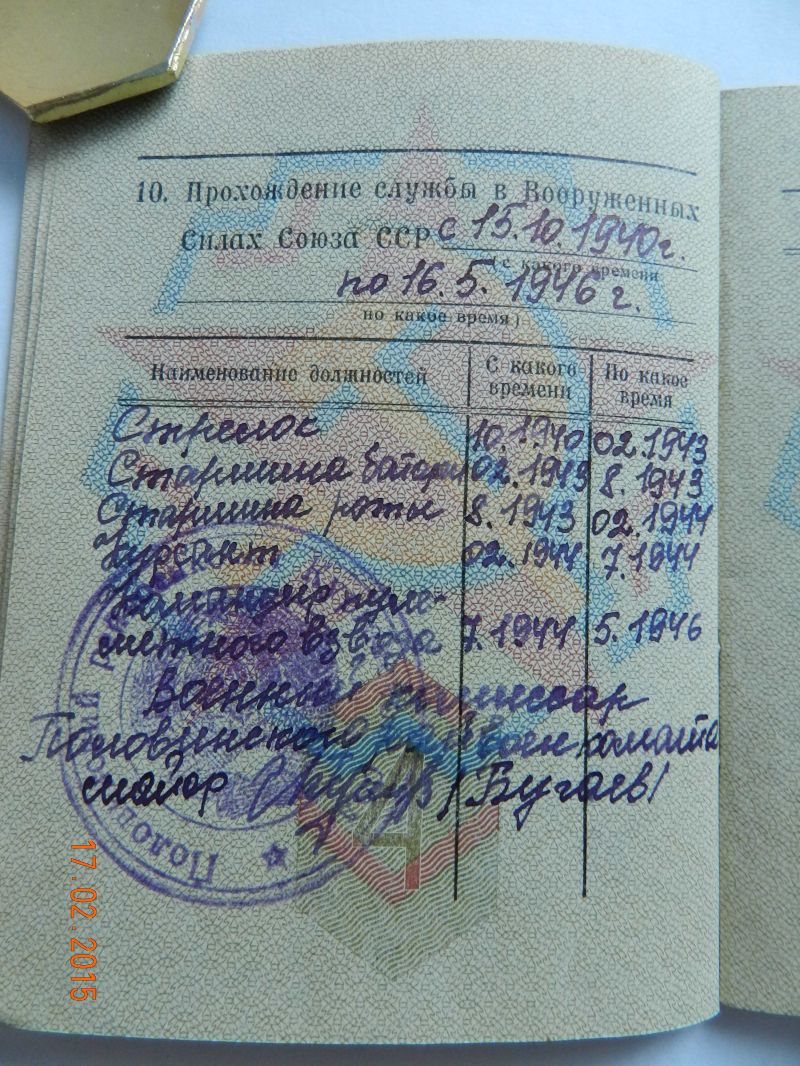 10. Прохождение службы в Вооруженных
Силах Союза ССР с 15.10.1940г.
(с какого времени
по 16.5.1946г.
по какое время)
Наименование должностей С какого времени По какое время
Стрелок 10.1940 02.1943
Старшина батареи 02.1943 8.1943
Старшина роты 8.1943 02.1944
Курсант 02.1944 7.1944
Командир пуле-
метного взвода 7.1944 5.1946
Военный комиссар
Половинского райвоенкомата
майор /Бугаев/
17.02.2015